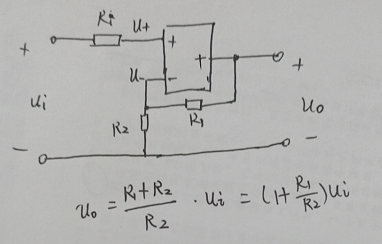 Ri U+
+ + + +
U- -
Ui R1 Uo
R2
- -
Uo = \frac{R1+R2}{R2} · Ui = (1+\frac{R1}{R2})Ui